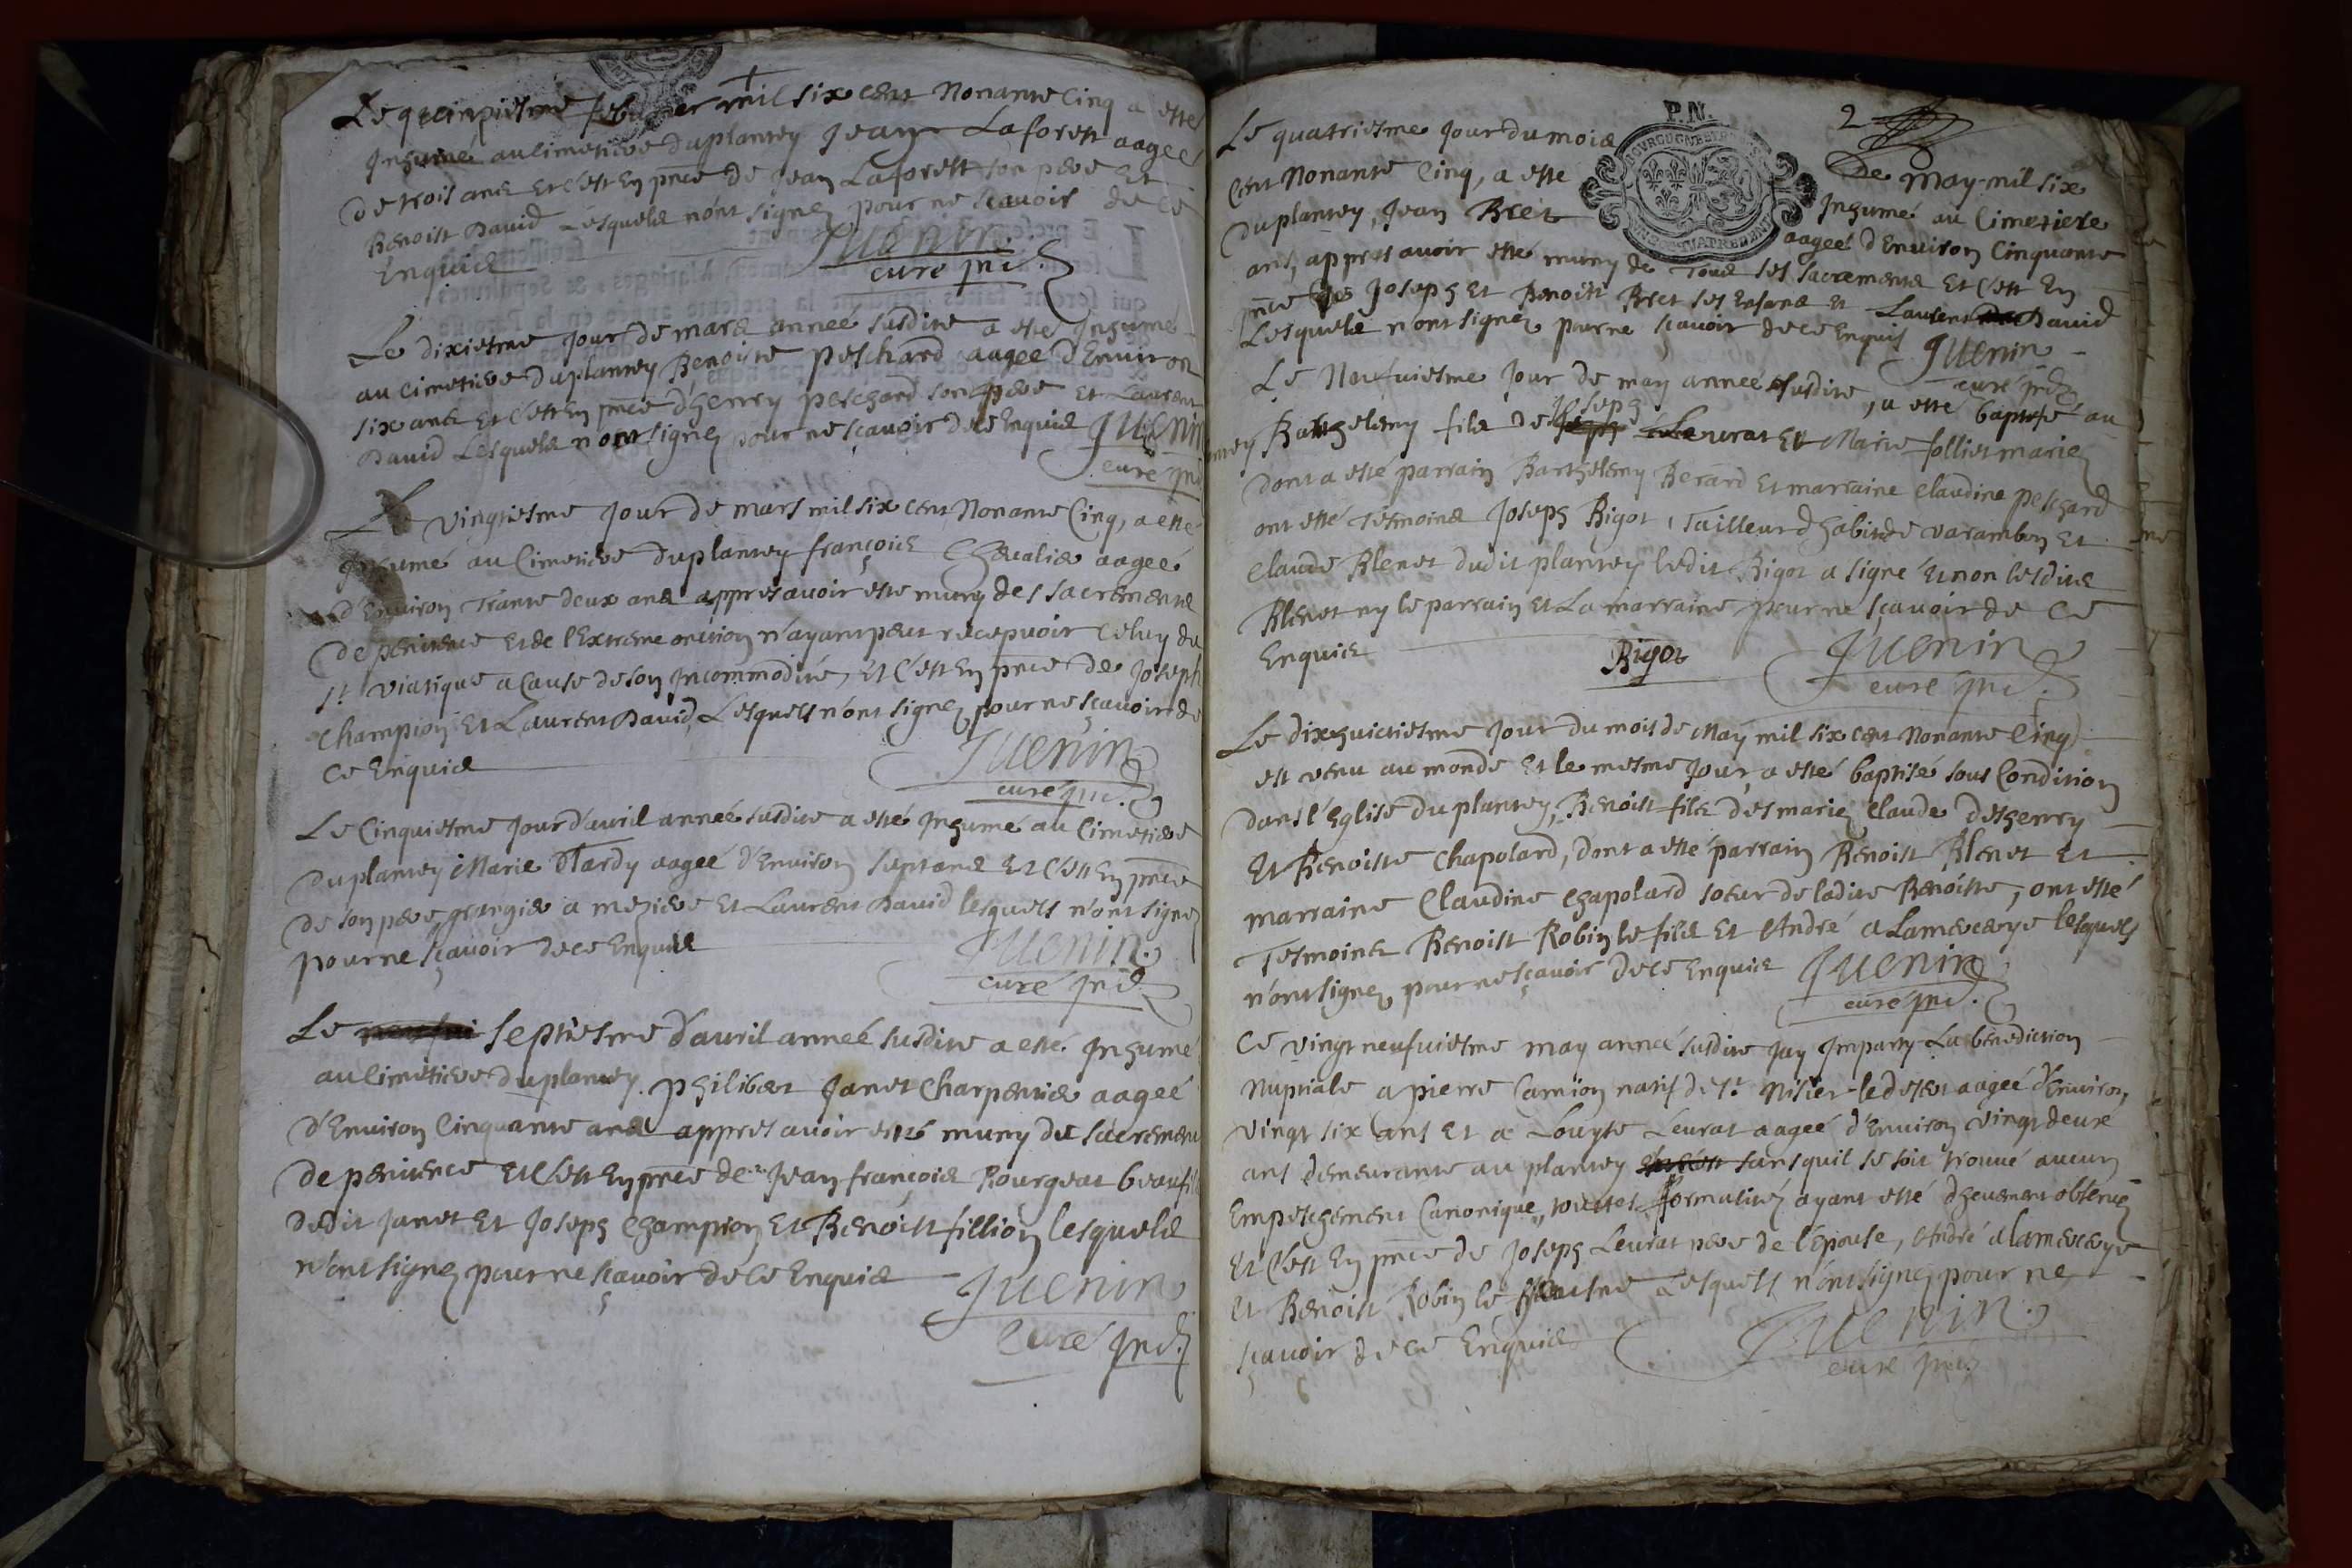 Le quinziesme febvrier mil six cent Nonante Cinq a esté
Inhumé au Cimetiere Du plantey Jean Laforest aagée
de trois ans Et c'est En pnce de Jean Laforest son pere Et
Benoist David Lesquels n'ont signez pour ne sçavoir de ce
Enquis
Juenin
curé ind.
Le dixiesme Jour de mars année susdite a esté Inhumé
au Cimetiere Du plantey Benoiste peschard aagée d'Environ
six ans Et c'est En pnce d'henry peschard son pere Et Laurent
David Lesquels n'ont signez pour ne sçavoir de ce Enquis Juenin
curé ind
Le vingtiesme Jour de mars mil six cent Nonante Cinq, a esté
Inhumé au Cimetiere Du plantey françois Chevalier aagée
d'Environ Trante deux ans appres avoir esté muny des sacrements
de penitence Et de l'Extreme onction n'ayant peut recepvoir Celuy du
st. viatique a Cause de son Incommodité, Et c'est En pnce de Joseph
Champion Et Laurent David, Lesquels n'ont signez pour ne sçavoir de
ce Enquis
Juenin
curé ind.
Le Cinquiesme Jour d'avril année susdite a esté Inhumé au Cimetiere
Du plantey Marie Tardy aagée d'Environ sept ans Et c'est En pnce
de son pere grangier a meziere Et Laurent David lesquels n'ont signez
pour ne sçavoir de ce Enquis
Juenin
curé ind.
Le septiesme d'avril année susdite a esté Inhumé
au Cimetiere Du plantey. philibert Janet Charpentier aagée
d'Environ Cinquante ans appres avoir esté muny du sacrement
de penitence Et c'est En pnce de Jean françois Pourgeat beaufils
dudit Janet Et Joseph Champion Et Benoist fillion lesquels
n'ont signez pour ne sçavoir de ce Enquis
Juenin
Curé ind.
P.N.
2
Le quatriesme Jour du mois De May mil six
Cent Nonante Cinq, a esté Inhumé au Cimetiere
Du plantey, Jean Bret aagée d'Environ Cinquante
ans, appres avoir esté muny de Tous ses sacrements Et c'est En
pnce Joseph Et Benoist Bret ses Enfans Et Laurent David
Lesquels n'ont signez pour ne sçavoir de ce Enquis Juenin
curé ind
Le Neufviesme Jour de may année susdite, a esté baptisé au
Barthelemy fils de Joseph Leurat Et Marie folliet mariez
Dont a esté parrain Barthelemy Berard Et marraine Claudine peschard
ont esté Tesmoins Joseph Rigot, Tailleur d'habits de varambon Et
Claude Blenet dudit plantey ledit Rigot a signé Et non lesdits
Blenet ny le parrain Et La marraine pour ne sçavoir de ce
Enquis
Rigot
Juenin
curé ind.
Le dixhuictiesme Jour du mois de May mil six cent Nonante Cinq
est venu au monde Et le mesme Jour a esté baptisé sous Condition
dans l'Eglise du plantey, Benoist fils des mariez Claude deshenry
Et Benoiste Chapolard, dont a esté parrain Benoist Blenet Et
marraine Claudine Chapolard soeur de ladite Benoiste, ont esté
Tesmoins Benoist Robin le fils Et André a Lamercerye lesquels
n'ont signez pour ne sçavoir de ce Enquis Juenin
curé ind.
Ce vingt neufviesme may année susdite Jay Imparty La benediction
nuptiale a pierre Camion natif de st. Nisier le desert aagée d'Environ
vingt six ans Et a Louyse Leurat aagée d'Environ vingt deux
ans demeurante au plantey sans quil se soit trouvé aucun
Empeschement Canonique, toutes formalitéz ayant esté dheuement obtenu
Et c'est En pnce de Joseph Leurat pere de l'Epouse, André a lamercerye
Et Benoist Robin le Lesquels n'ont signez pour ne
sçavoir de ce Enquis
Juenin
curé ind.